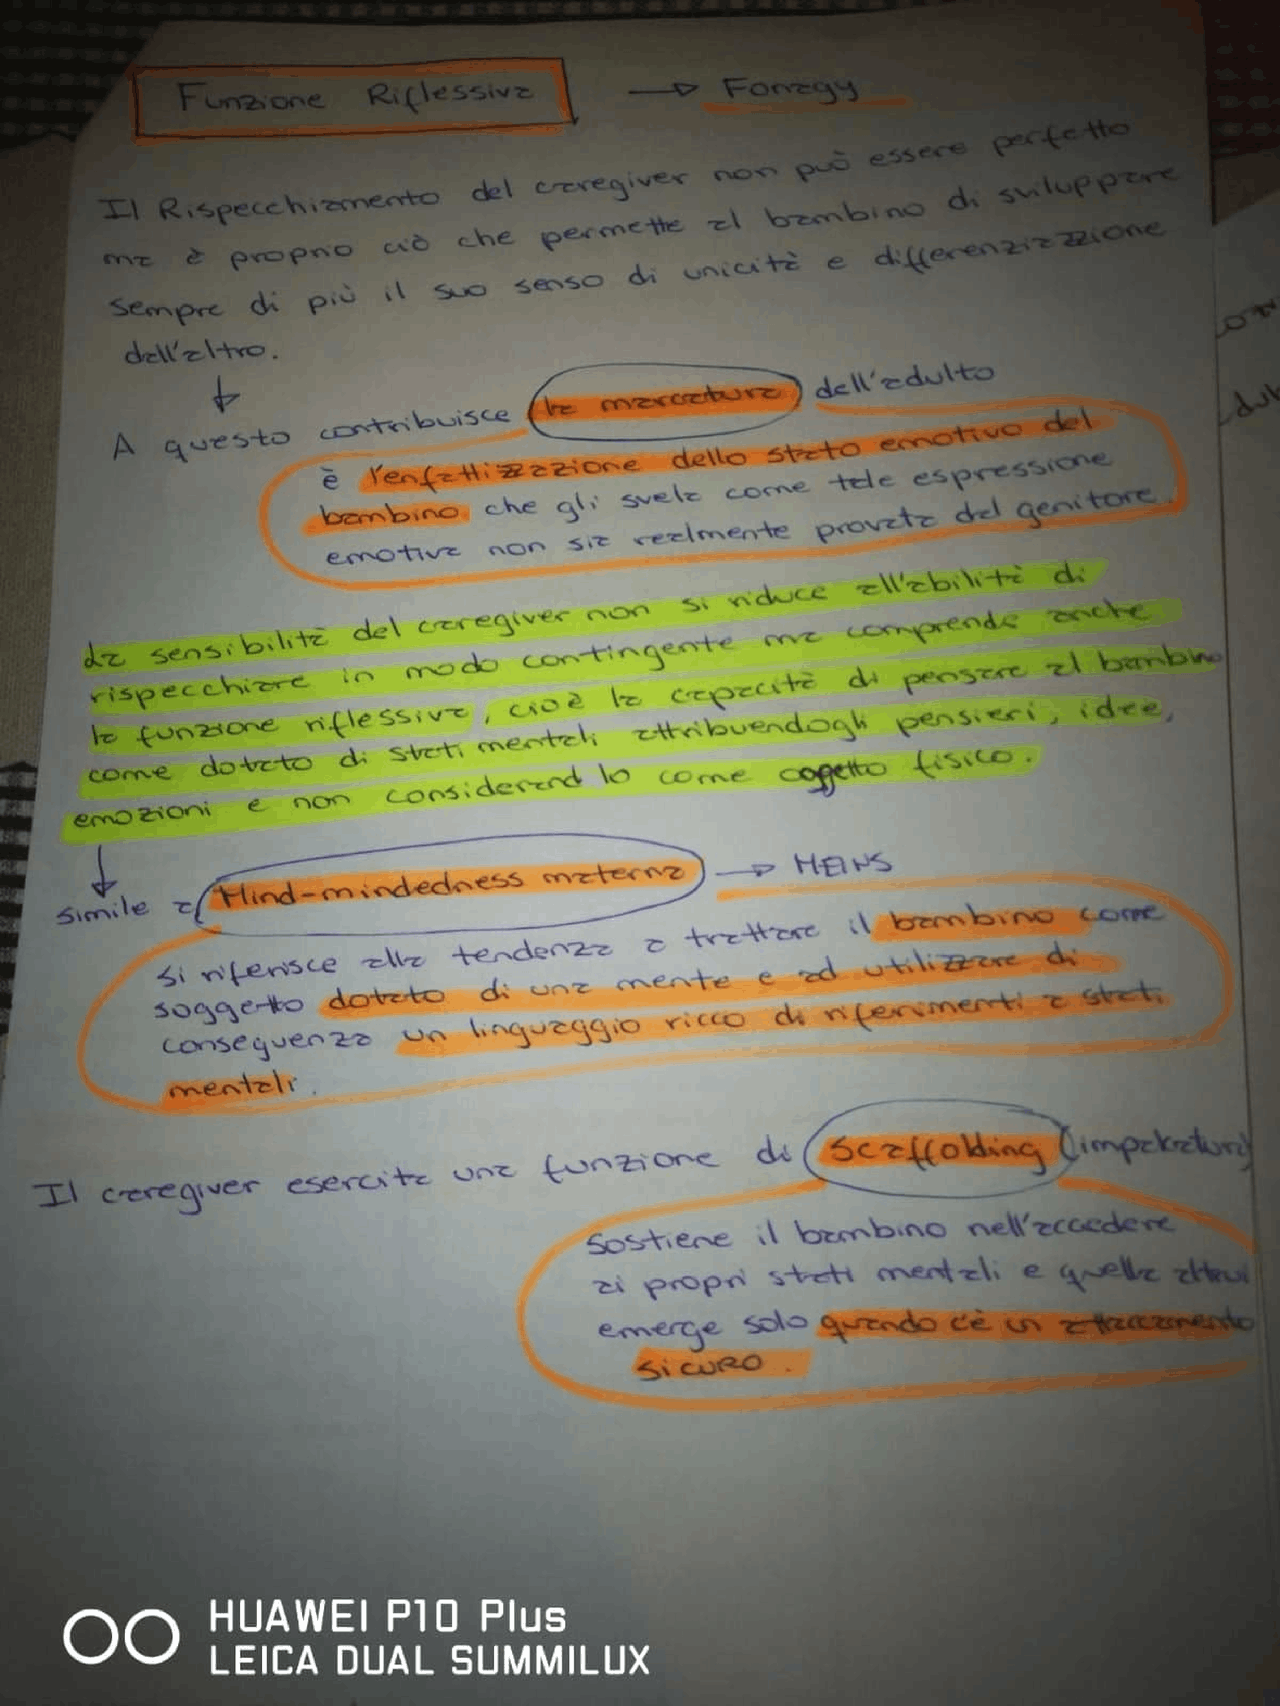 Funzione Riflessiva → Fonagy
Il Rispecchiamento del caregiver non può essere perfetto
ma è proprio ciò che permette al bambino di sviluppare
sempre di più il suo senso di unicità e differenziazione
dall'altro.
↓
A questo contribuisce la marcatura dell'adulto
è l'enfatizzazione dello stato emotivo del
bambino che gli svela come tale espressione
emotiva non sia realmente provata dal genitore.
La sensibilità del caregiver non si riduce all'abilità di
rispecchiare in modo contingente ma comprende anche
la funzione riflessiva, cioè la capacità di pensare al bambino
come dotato di stati mentali attribuendogli pensieri, idee,
emozioni e non considerandolo come oggetto fisico.
↓
Simile a Mind-mindedness materna → MEINS
Si riferisce alla tendenza a trattare il bambino come
soggetto dotato di una mente e ad utilizzare di
conseguenza un linguaggio ricco di riferimenti a stati
mentali.
Il caregiver esercita una funzione di scaffolding (impalcatura)
Sostiene il bambino nell'accedere
ai propri stati mentali e quella altrui
emerge solo quando c'è un attaccamento
sicuro.
HUAWEI P10 Plus
LEICA DUAL SUMMILUX